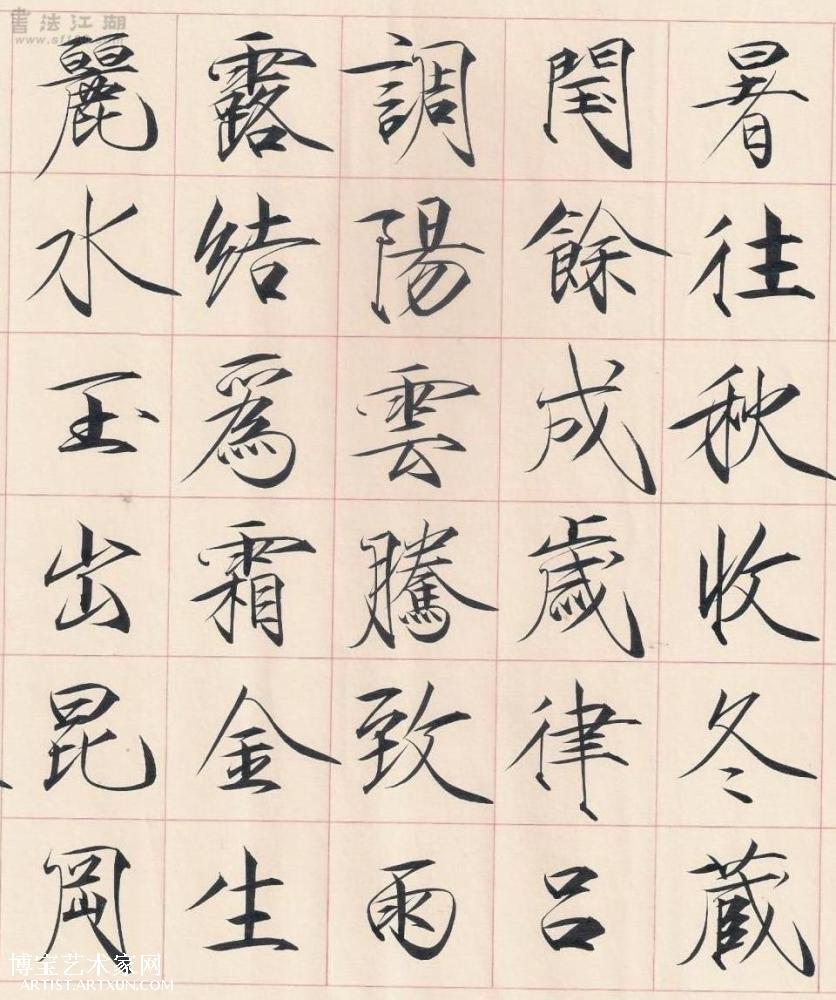 暑往秋收冬蔵
閏餘成歳律呂
調陽雲騰致雨
露結爲霜金生
麗水玉出昆岡
書法江湖
博宝艺术家网
ARTIST.ARTXUN.COM